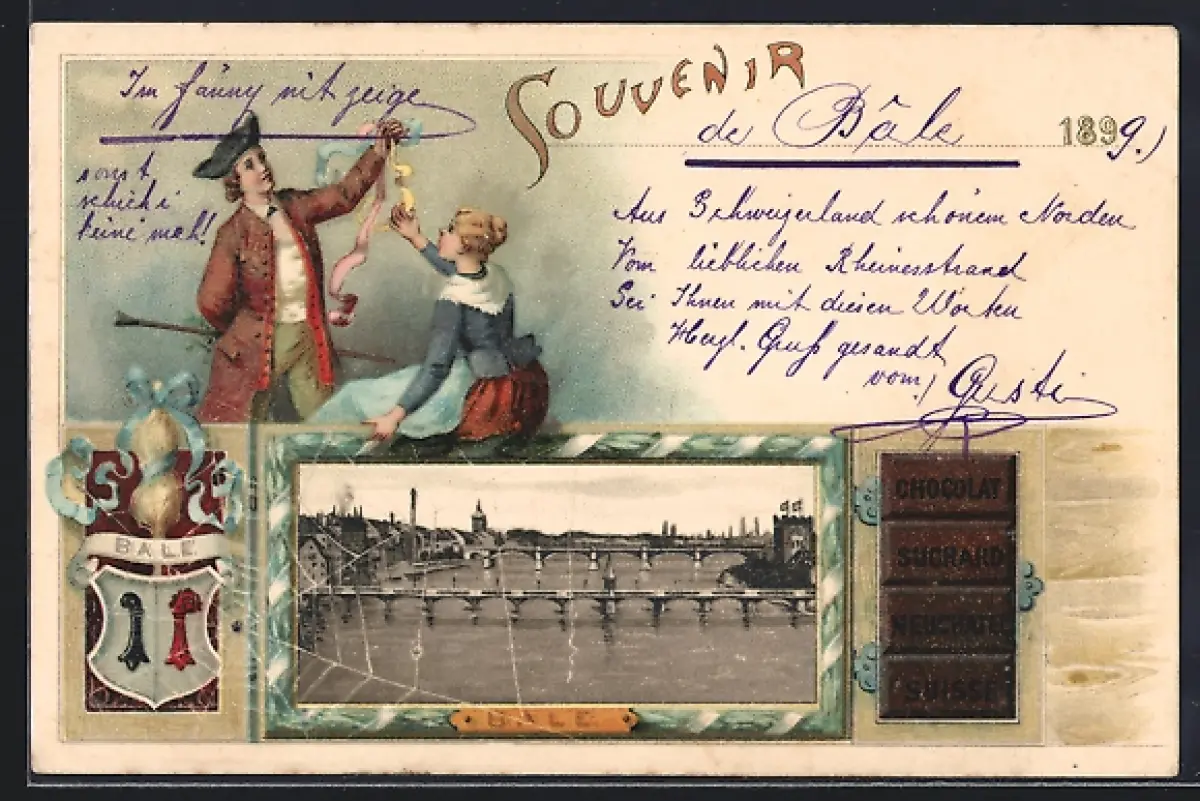 Im Fänny nit zeige
sonst
schick i
keine meh!
SOUVENIR
de Bâle 1899.)
Aus Schweizerland schönem Norden
Vom lieblichen Rheinesstrand
Sei Ihnen mit diesen Worten
Herzl. Gruß gesandt
vom)
BALE
BALE
CHOCOLAT
SUCHARD
NEUCHATEL
SUISSE